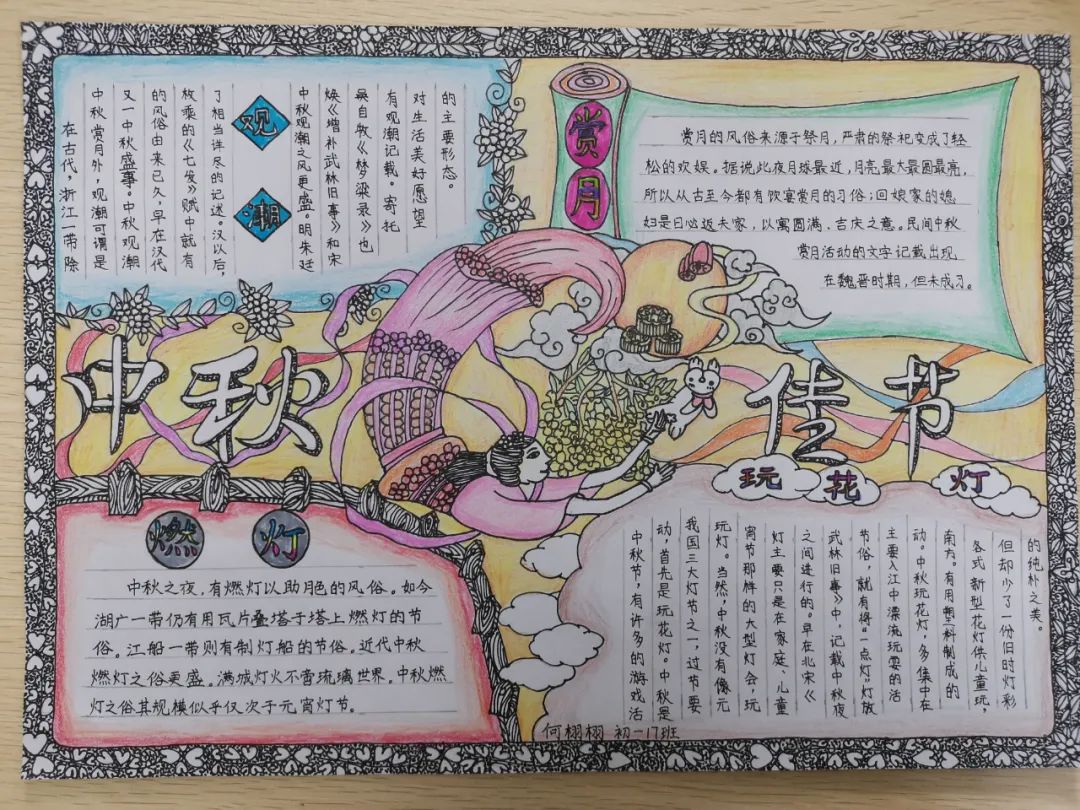 中秋佳节
观潮
在古代，浙江一带除
中秋赏月外，观潮可谓是
又一中秋盛事。中秋观潮
的风俗由来已久，早在汉代
枚乘的《七发》赋中就有
了相当详尽的记述。汉以后，
中秋观潮之风更盛。明朱廷
焕《增补武林旧事》和宋
吴自牧《梦粱录》也
有观潮记载。寄托
对生活美好愿望
的主要形态。
赏月
赏月的风俗来源于祭月，严肃的祭祀变成了轻
松的欢娱。据说此夜月球最近，月亮最大最圆最亮，
所以从古至今都有饮宴赏月的习俗；回娘家的媳
妇是日必返夫家，以寓圆满、吉庆之意。民间中秋
赏月活动的文字记载出现
在魏晋时期，但未成习。
燃灯
中秋之夜，有燃灯以助月色的风俗。如今
湖广一带仍有用瓦片叠塔于塔上燃灯的节
俗。江船一带则有制灯船的节俗。近代中秋
燃灯之俗更盛。满城灯火不啻琉璃世界。中秋燃
灯之俗其规模似乎仅次于元宵灯节。
玩花灯
中秋节，有许多的游戏活
动，首先是玩花灯。中秋是
我国三大灯节之一，过节要
玩灯。当然，中秋没有像元
宵节那样的大型灯会，玩
灯主要只是在家庭、儿童
之间进行的。早在北宋《
武林旧事》中，记载中秋夜
节俗，就有将“一点灯”灯放
主要入江中漂流玩耍的活
动。中秋玩花灯，多集中在
南方。有用塑料制成的
各式新型花灯供儿童玩，
但却少了一份旧时灯彩
的纯朴之美。
何栩栩 初一17班